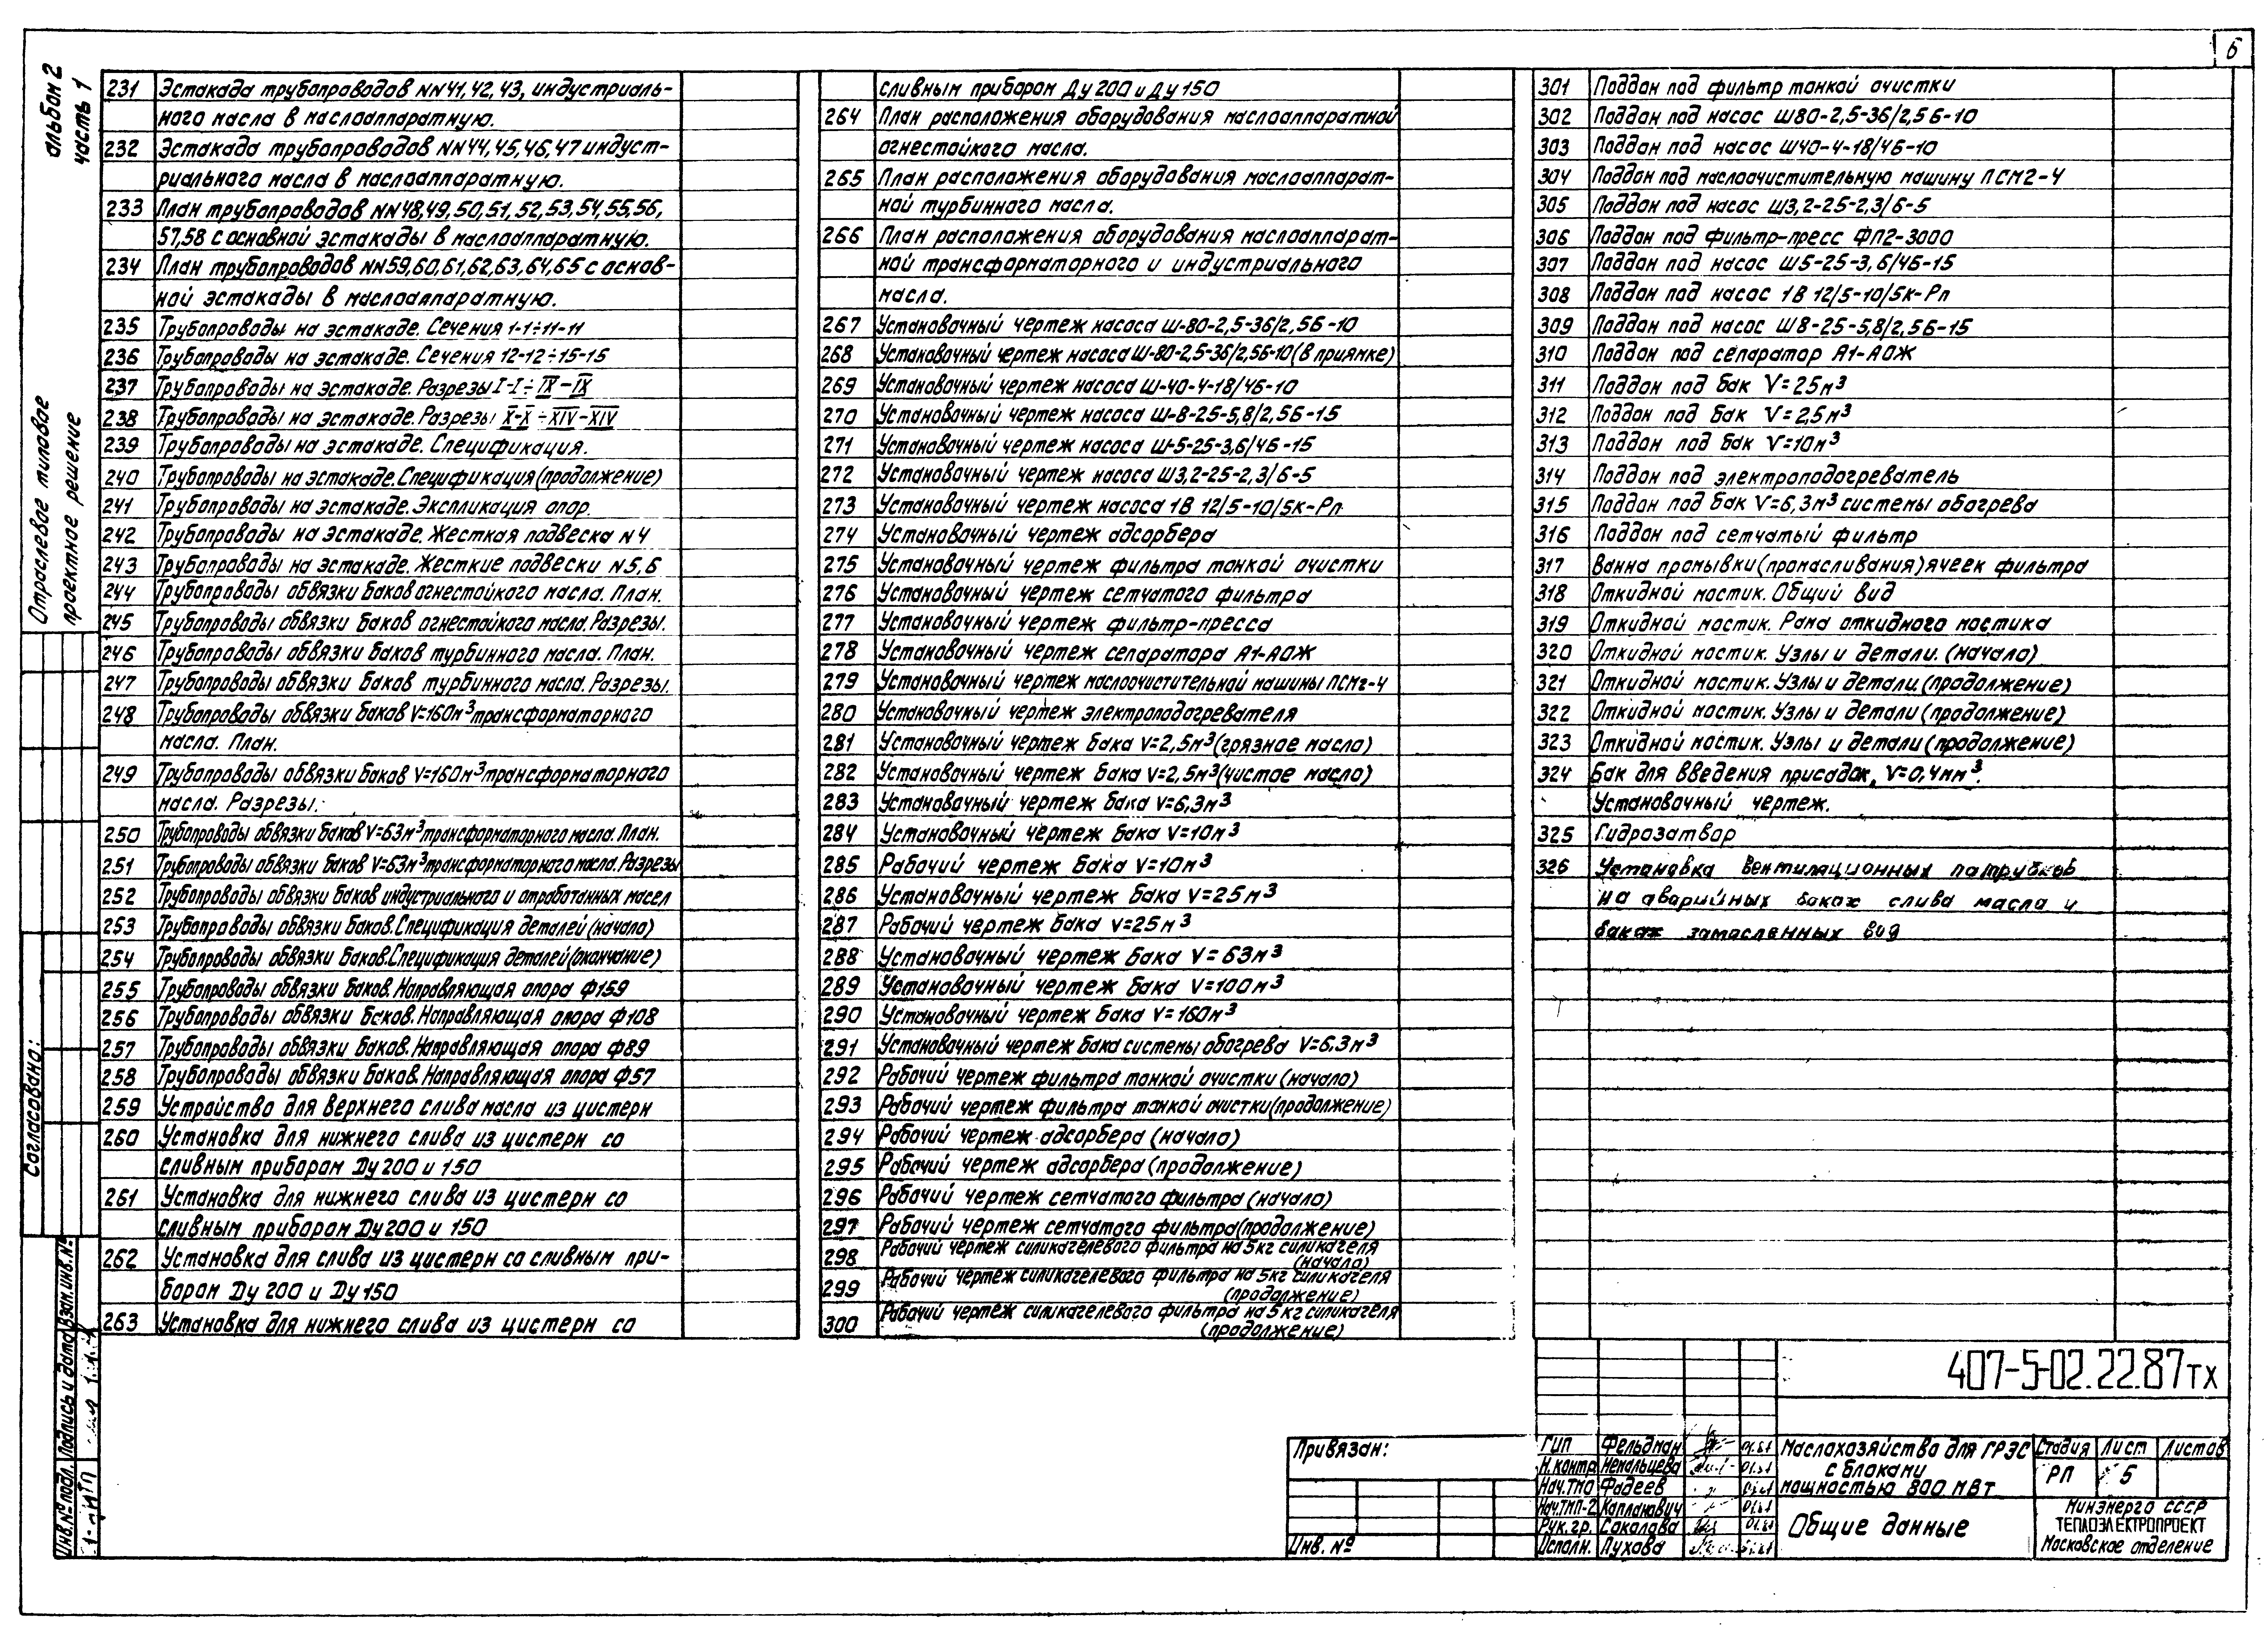 6
альбом 2
часть 1
Отраслевое типовое
проектное решение
Согласовано:
Взам.инв.№
Подпись и дата
Инв.№ подл.
231 Эстакада трубопроводов NN41, 42, 43, индустриаль-
ного масла в маслоаппаратную.
232 Эстакада трубопроводов NN44, 45, 46, 47 индуст-
риального масла в маслоаппаратную.
233 План трубопроводов NN48,49,50,51,52,53,54,55,56,
57,58 с основной эстакады в маслоаппаратную.
234 План трубопроводов NN59,60,61,62,63,64,65 с основ-
ной эстакады в маслоаппаратную.
235 Трубопроводы на эстакаде. Сечения 1-1÷11-11
236 Трубопроводы на эстакаде. Сечения 12-12÷15-15
237 Трубопроводы на эстакаде. Разрезы I-I÷IX-IX
238 Трубопроводы на эстакаде. Разрезы X-X÷XIV-XIV
239 Трубопроводы на эстакаде. Спецификация.
240 Трубопроводы на эстакаде. Спецификация (продолжение)
241 Трубопроводы на эстакаде. Экспликация опор.
242 Трубопроводы на эстакаде. Жесткая подвеска N4
243 Трубопроводы на эстакаде. Жесткие подвески N5,6
244 Трубопроводы обвязки баков огнестойкого масла. План.
245 Трубопроводы обвязки баков огнестойкого масла. Разрезы.
246 Трубопроводы обвязки баков турбинного масла. План.
247 Трубопроводы обвязки баков турбинного масла. Разрезы.
248 Трубопроводы обвязки баков V=160м³ трансформаторного
масла. План.
249 Трубопроводы обвязки баков V=160м³ трансформаторного
масла. Разрезы.
250 Трубопроводы обвязки баков V=63м³ трансформаторного масла. План.
251 Трубопроводы обвязки баков V=63м³ трансформаторного масла. Разрезы
252 Трубопроводы обвязки баков индустриального и отработанных масел
253 Трубопроводы обвязки баков. Спецификация деталей (начало)
254 Трубопроводы обвязки баков. Спецификация деталей (окончание)
255 Трубопроводы обвязки баков. Направляющая опора ф159
256 Трубопроводы обвязки баков. Направляющая опора ф108
257 Трубопроводы обвязки баков. Направляющая опора ф89
258 Трубопроводы обвязки баков. Направляющая опора ф57
259 Устройство для верхнего слива масла из цистерн
260 Установка для нижнего слива из цистерн со
сливным прибором Ду 200 и 150
261 Установка для нижнего слива из цистерн со
сливным прибором Ду 200 и 150
262 Установка для слива из цистерн со сливным при-
бором Ду 200 и Ду 150
263 Установка для нижнего слива из цистерн со
сливным прибором Ду 200 и Ду 150
264 План расположения оборудования маслоаппаратной
огнестойкого масла.
265 План расположения оборудования маслоаппарат-
ной турбинного масла.
266 План расположения оборудования маслоаппарат-
ной трансформаторного и индустриального
масла.
267 Установочный чертеж насоса Ш-80-2,5-36/2,5б-10
268 Установочный чертеж насоса Ш-80-2,5-36/2,5б-10 (в приямке)
269 Установочный чертеж насоса Ш-40-4-18/4б-10
270 Установочный чертеж насоса Ш-8-25-5,8/2,5б-15
271 Установочный чертеж насоса Ш-5-25-3,6/4б-15
272 Установочный чертеж насоса Ш3,2-25-2,3/6-5
273 Установочный чертеж насоса 1В 12/5-10/5к-Рп
274 Установочный чертеж адсорбера
275 Установочный чертеж фильтра тонкой очистки
276 Установочный чертеж сетчатого фильтра
277 Установочный чертеж фильтр-пресса
278 Установочный чертеж сепаратора А1-АОЖ
279 Установочный чертеж маслоочистительной машины ПСМ2-4
280 Установочный чертеж электроподогревателя
281 Установочный чертеж бака V=2,5м³ (грязное масло)
282 Установочный чертеж бака V=2,5м³ (чистое масло)
283 Установочный чертеж бака V=6,3м³
284 Установочный чертеж бака V=10м³
285 Рабочий чертеж бака V=10м³
286 Установочный чертеж бака V=25м³
287 Рабочий чертеж бака V=25м³
288 Установочный чертеж бака V=63м³
289 Установочный чертеж бака V=100м³
290 Установочный чертеж бака V=160м³
291 Установочный чертеж бака системы обогрева V=6,3м³
292 Рабочий чертеж фильтра тонкой очистки (начало)
293 Рабочий чертеж фильтра тонкой очистки (продолжение)
294 Рабочий чертеж адсорбера (начало)
295 Рабочий чертеж адсорбера (продолжение)
296 Рабочий чертеж сетчатого фильтра (начало)
297 Рабочий чертеж сетчатого фильтра (продолжение)
298 Рабочий чертеж силикагелевого фильтра на 5кг силикагеля
(начало)
299 Рабочий чертеж силикагелевого фильтра на 5кг силикагеля
(продолжение)
300 Рабочий чертеж силикагелевого фильтра на 5кг силикагеля
(продолжение)
301 Поддон под фильтр тонкой очистки
302 Поддон под насос Ш80-2,5-36/2,5б-10
303 Поддон под насос Ш40-4-18/4б-10
304 Поддон под маслоочистительную машину ПСМ2-4
305 Поддон под насос Ш3,2-25-2,3/6-5
306 Поддон под фильтр-пресс ФП2-3000
307 Поддон под насос Ш5-25-3,6/4б-15
308 Поддон под насос 1В 12/5-10/5к-Рп
309 Поддон под насос Ш8-25-5,8/2,5б-15
310 Поддон под сепаратор А1-АОЖ
311 Поддон под бак V=25м³
312 Поддон под бак V=2,5м³
313 Поддон под бак V=10м³
314 Поддон под электроподогреватель
315 Поддон под бак V=6,3м³ системы обогрева
316 Поддон под сетчатый фильтр
317 Ванна промывки (промасливания) ячеек фильтра
318 Откидной мостик. Общий вид
319 Откидной мостик. Рама откидного мостика
320 Откидной мостик. Узлы и детали. (начало)
321 Откидной мостик. Узлы и детали. (продолжение)
322 Откидной мостик. Узлы и детали (продолжение)
323 Откидной мостик. Узлы и детали (продолжение)
324 Бак для введения присадок, V=0,4мм³.
Установочный чертеж.
325 Гидрозатвор
326 Установка вентиляционных патрубков
на аварийных баках слива масла и
баках замасленных вод
407-5-02.22.87ТХ
Привязан:
Инв. №
ГИП Фельдман 01.87
Н.контр Немальцева 01.87
Нач.ТМО Фадеев 01.87
Нач.ТМП-2 Капланович 01.87
Рук.гр. Соколова 01.87
Исполн. Пухова 01.87
Маслохозяйство для ГРЭС
с блоками
мощностью 800 МВт
Стадия Лист Листов
РП 5
Общие данные
Минэнерго СССР
ТЕПЛОЭЛЕКТРОПРОЕКТ
Московское отделение